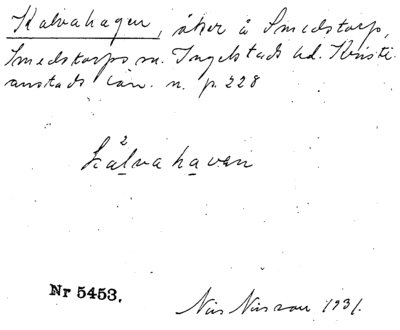 Kalvahagen, åker å Smedstorp,
Smedstorps sn. Ingelstads hd. Kristi-
anstads län. n. p. 228
kalvahaven
Nr 5453.
Nils Nilsson 1931.